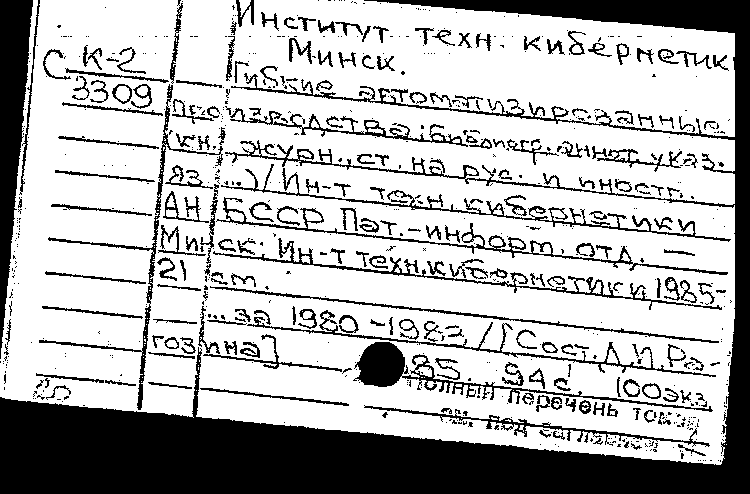 Институт техн. кибернетик
Минск.
С К-2
3309
Гибкие автоматизированные
производства: библиогр. аннот. указ.
(кн., журн., ст. на рус. и иностр.
яз ...) / Ин-т техн. кибернетики
АН БССР, Пат.-информ. отд. —
Минск: Ин-т техн. кибернетики, 1985-
21 см.
... за 1980-1983 / [Сост. Л.И. Ра-
гозина]. 85. 94 с. 100 экз.
Полный перечень томов
см. под заглавием
20